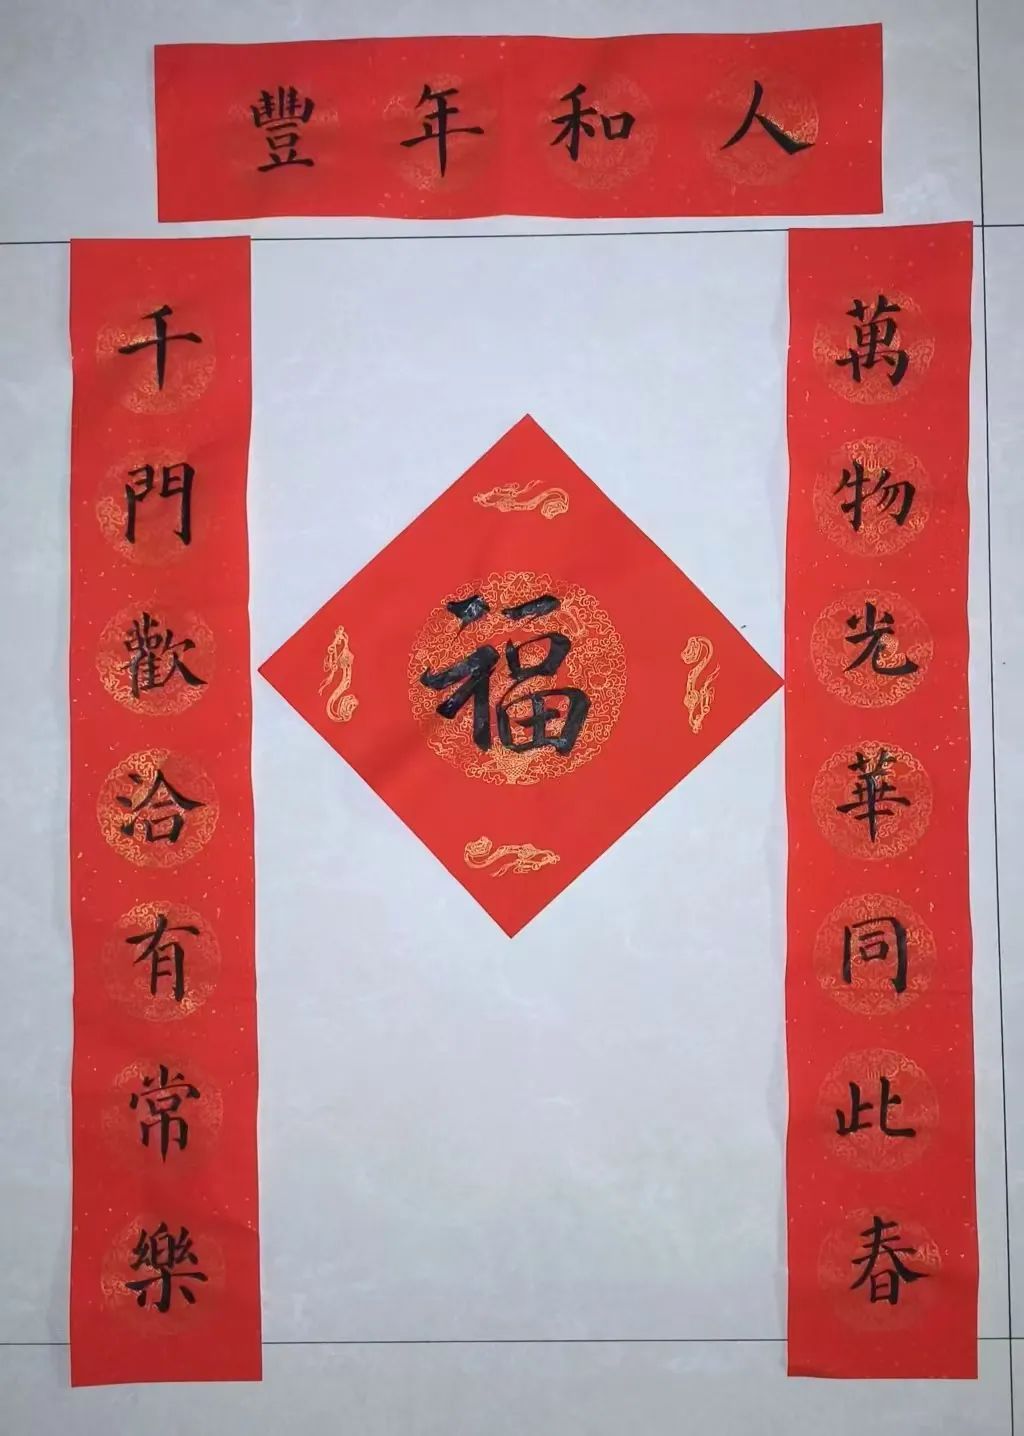 人和年豐
萬物光華同此春
千門歡洽有常樂
福